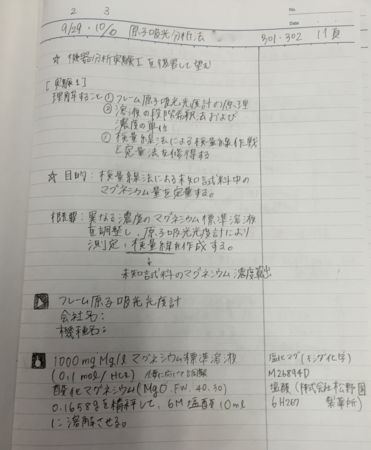 2 3
9/29・10/6 原子吸光分析法 301・302 11頁
No.
Date
☆ 機器分析実験Iを復習して望む
[実験1]
理解すること ① フレーム原子吸光光度計の原理
② 溶液の段階希釈法および
濃度の単位
③ 検量線法による検量線作成
と定量法を修得する
☆ 目的：検量線法による未知試料中の
マグネシウム量を定量する。
概略：異なる濃度のマグネシウム標準溶液
を調整し、原子吸光光度計により
測定，検量線を作成する。
↓
未知試料のマグネシウム濃度算出
フレーム原子吸光光度計
会社名：
機種名：
1000mg Mg/l マグネシウム標準溶液
(0.1mol/l HCl)
酸化マグネシウム(MgO, FW. 40.30)
0.1658gを精秤して、6M塩酸10ml
に溶解させる。
塩化マグ(キシダ化学)
M26894D
塩酸(株式会社松野
6H267 製薬所)